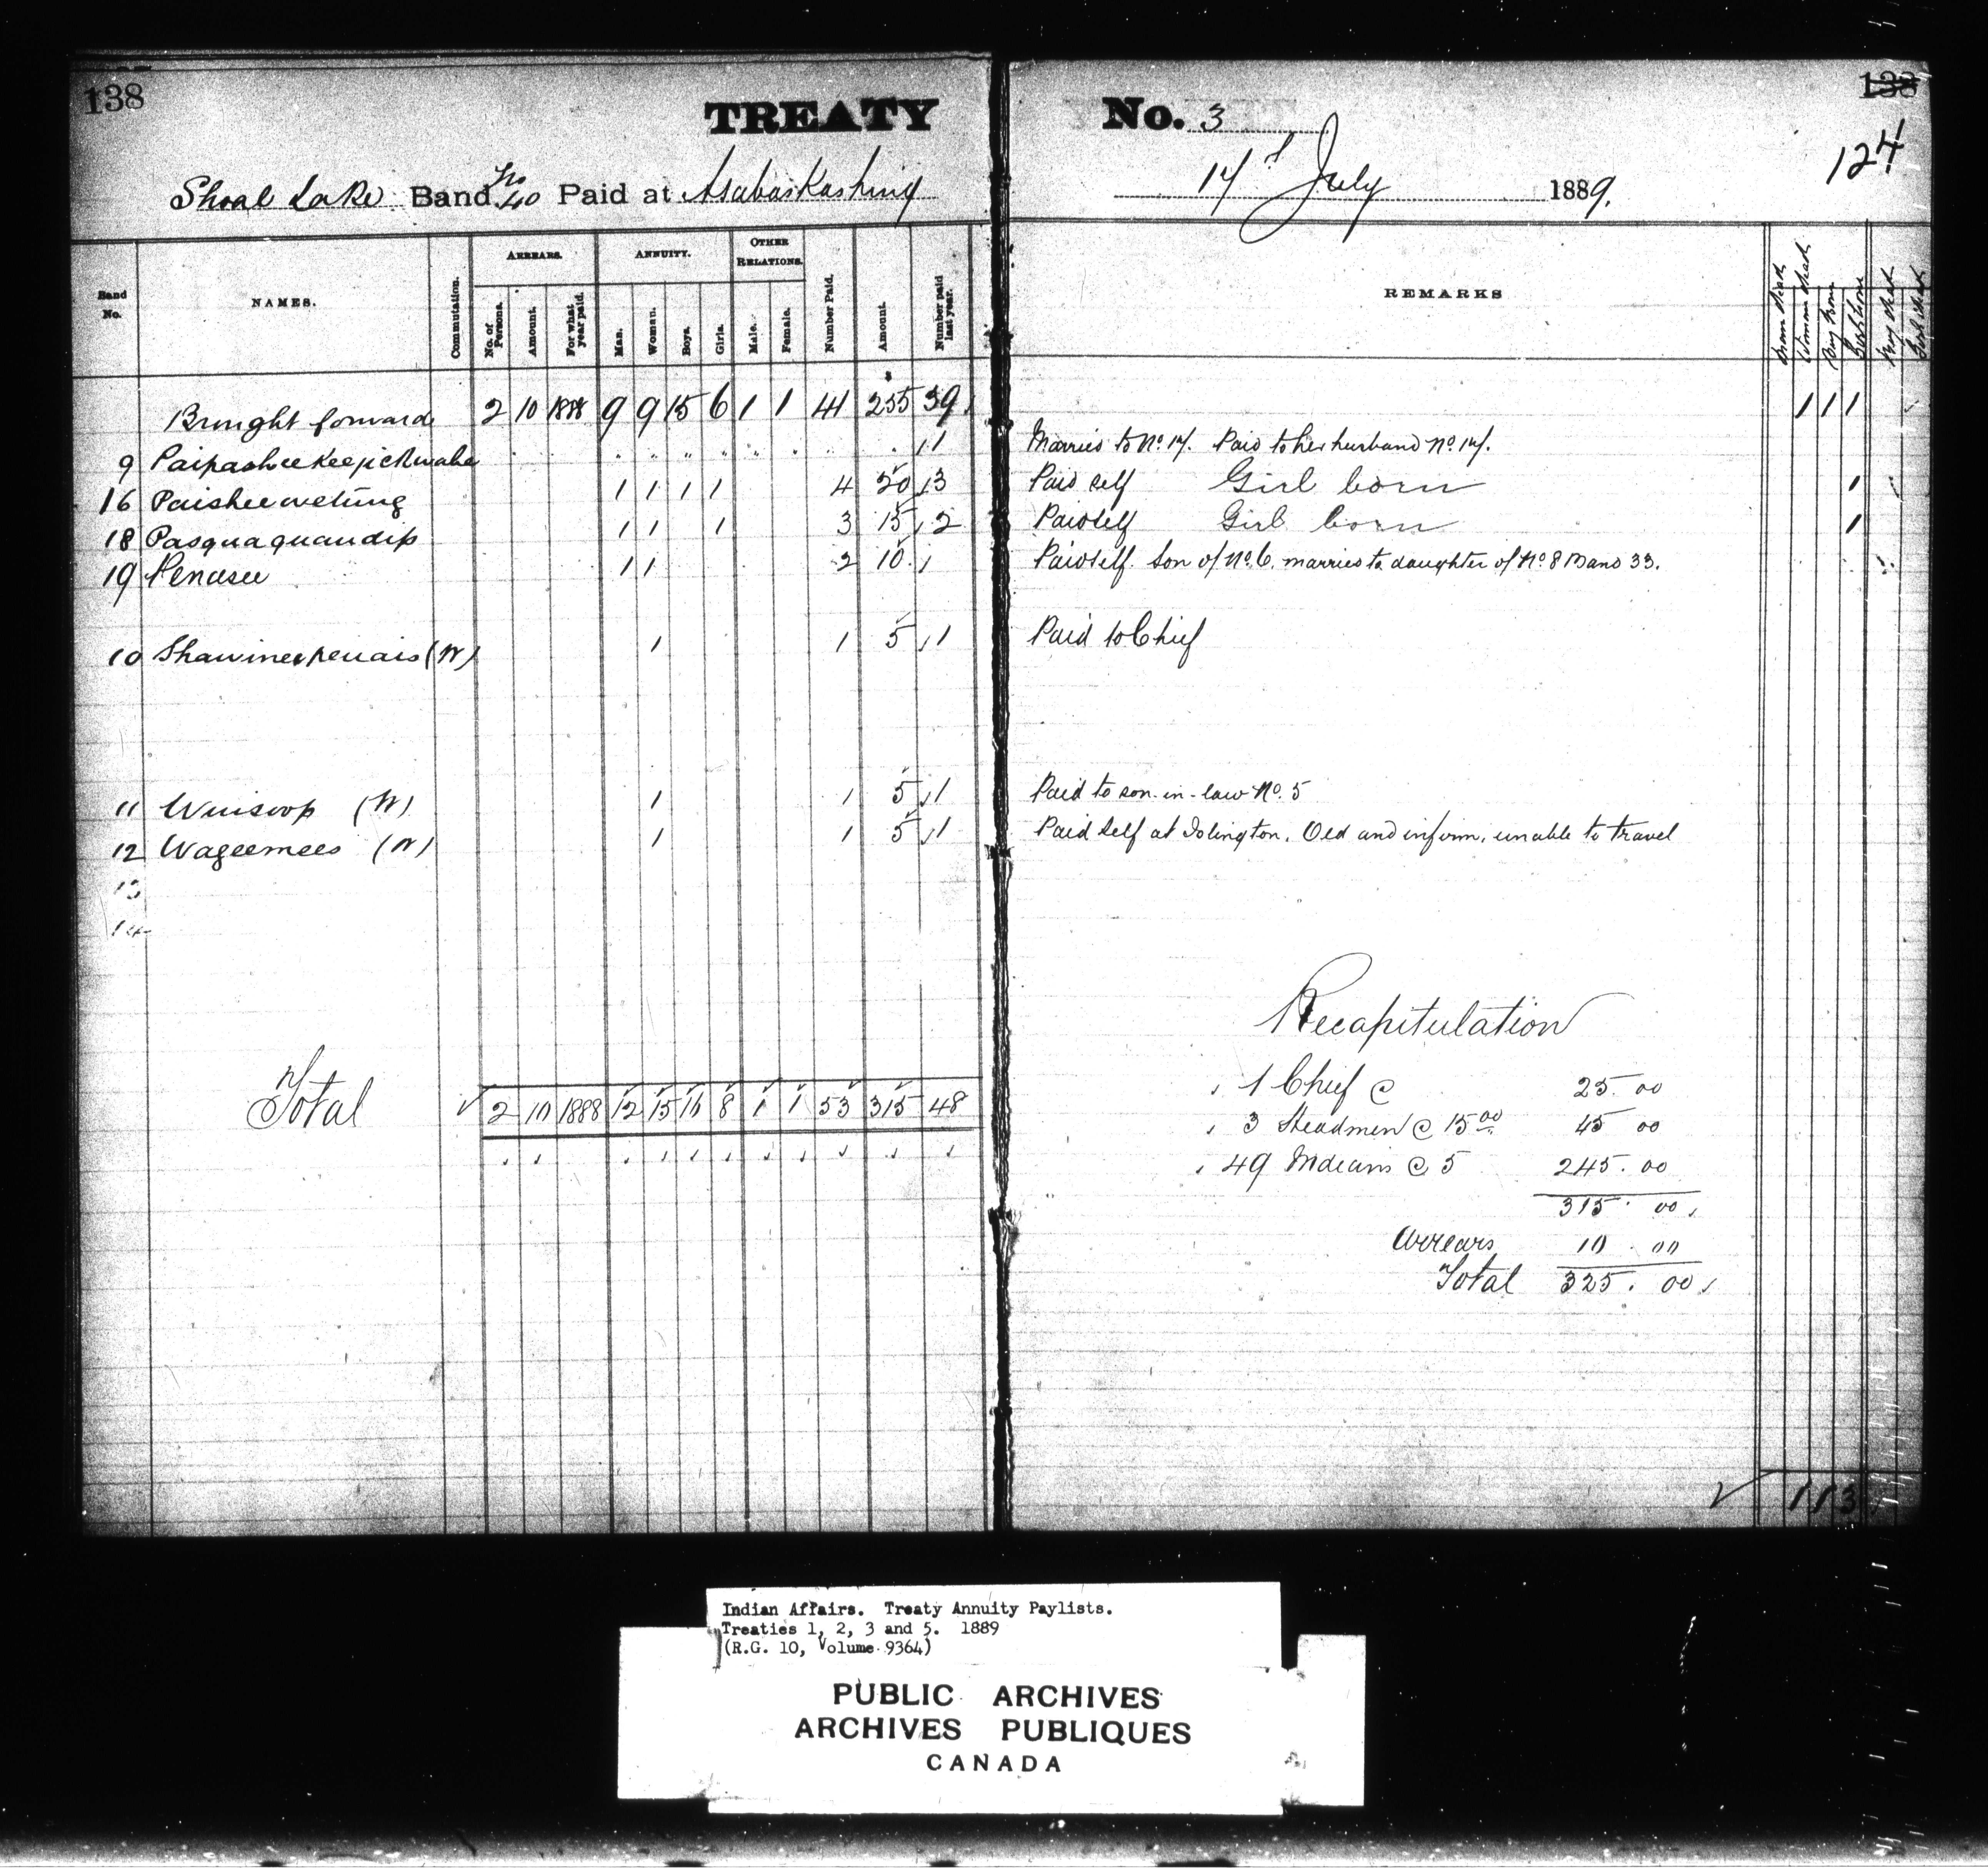 138
TREATY No. 3
138
124
Shoal Lake Band No 40 Paid at Asabaskashing
14th July 1889.
Band No.
NAMES.
Commutation.
ARREARS.
No. of Persons.
Amount.
For what year paid.
ANNUITY.
Man.
Woman.
Boys.
Girls.
OTHER RELATIONS.
Male.
Female.
Number Paid.
Amount.
Number paid last year.
REMARKS
Man died
Woman died
Boy born
Girl born
Boy died
Girl died
Brought forward 2 10 1888 9 9 15 6 1 1 41 255 39 1 1 1
9 Paipasheekeejickwabe " " " " " " 1 Married to No 14. Paid to her husband No 14.
16 Paisheewetung 1 1 1 1 4 20 3 Paid self Girl born 1
18 Pasquaquandip 1 1 1 3 15 2 Paid self Girl born 1
19 Penasee 1 1 2 10 Paid self. Son of No 6. married to daughter of No 8 Band 33.
10 (W) 1 1 5 1 Paid to Chief
11 Winsoop (W) 1 1 5 1 Paid to son-in-law No. 5
12 Wageemees (W) 1 1 5 1 Paid self at Islington. Old and infirm, unable to travel
13
14
Recapitulation
1 Chief @ 25.00
Total 2 10 1888 12 15 16 8 1 1 53 315 48
3 Headmen @ 15.00 45 00
49 Indians @ 5 245.00
315.00
Arrears 10.00
Total 325.00
1 1 3
Indian Affairs. Treaty Annuity Paylists.
Treaties 1, 2, 3 and 5. 1889
(R.G. 10, Volume 9364)
PUBLIC ARCHIVES
ARCHIVES PUBLIQUES
CANADA